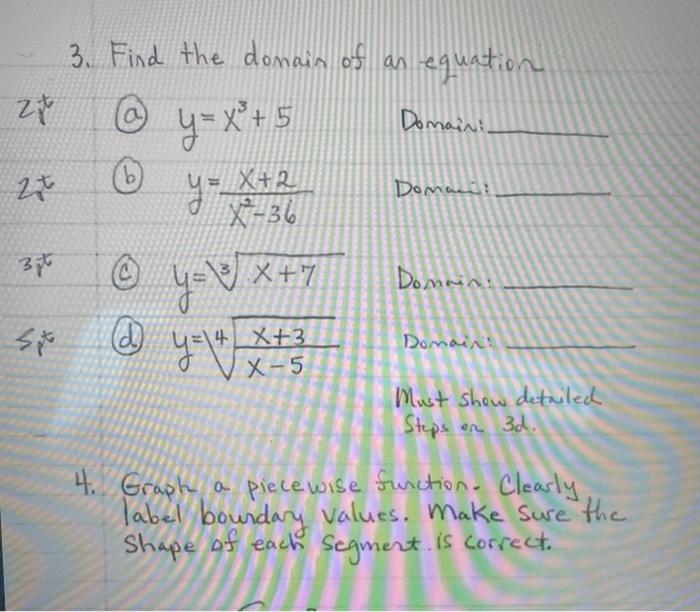 3. Find the domain of an equation
2pt ⓐ y = x³ + 5 Domain: ______
2pt ⓑ y = (x+2)/(x²-36) Domain: ______
3pt ⓒ y = ∛(x+7) Domain: ______
5pt ⓓ y = ∜((x+3)/(x-5)) Domain: ______
Must show detailed
Steps on 3d.
4. Graph a piecewise function. Clearly
label boundary values. Make sure the
Shape of each segment is correct.